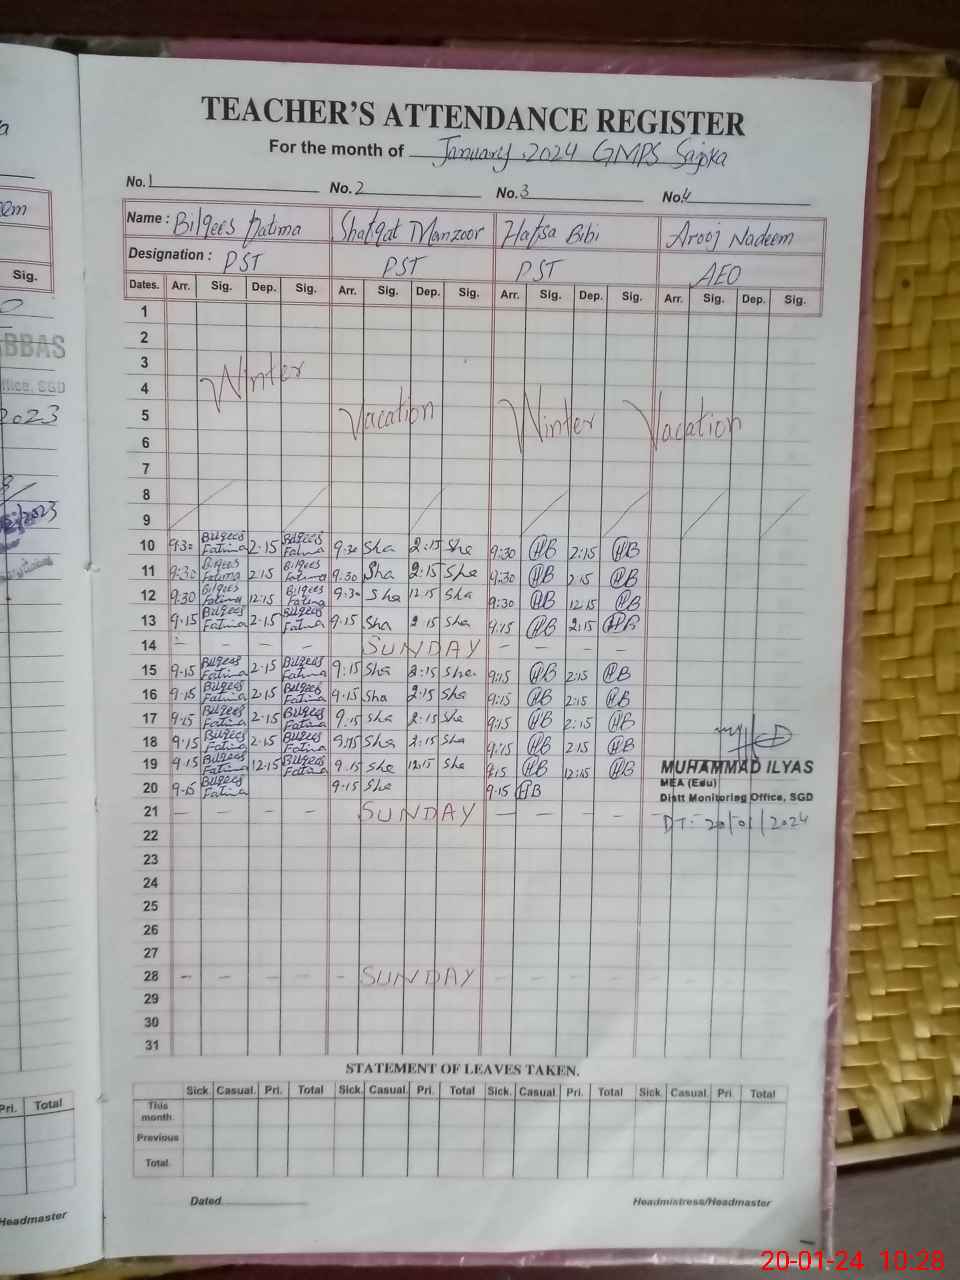 TEACHER'S ATTENDANCE REGISTER
For the month of January, 2024 GMPS Sajoka
No. 1 No. 2 No. 3 No. 4
Name : Bilqees Fatima Shafqat Manzoor Hafsa Bibi Arooj Nadeem
Designation : PST PST PST AEO
Dates. Arr. Sig. Dep. Sig. Arr. Sig. Dep. Sig. Arr. Sig. Dep. Sig. Arr. Sig. Dep. Sig.
1
2
3
Winter
4
5 Vacation Winter Vacation
6
7
8
9
10 9:30 Bilqees Fatima 2:15 Bilqees Fatima 9:30 Sha 2:15 She 9:30 HB 2:15 HB
11 9:30 Bilqees Fatima 2:15 Bilqees Fatima 9:30 Sha 2:15 She 9:30 HB 2:15 HB
12 9:30 Bilqees Fatima 12:15 Bilqees Fatima 9:30 She 12:15 Sha 9:30 HB 12:15 HB
13 9:15 Bilqees Fatima 2:15 Bilqees Fatima 9:15 Sha 2:15 Sha 9:15 HB 2:15 HB
14 – – – – SUNDAY – – – –
15 9:15 Bilqees Fatima 2:15 Bilqees Fatima 9:15 Sha 2:15 She 9:15 HB 2:15 HB
16 9:15 Bilqees Fatima 2:15 Bilqees Fatima 9:15 Sha 2:15 Sha 9:15 HB 2:15 HB
17 9:15 Bilqees Fatima 2:15 Bilqees Fatima 9:15 Sha 2:15 She 9:15 HB 2:15 HB
18 9:15 Bilqees Fatima 2:15 Bilqees Fatima 9:15 She 2:15 Sha 9:15 HB 2:15 HB
19 9:15 Bilqees Fatima 12:15 Bilqees Fatima 9:15 She 12:15 She 9:15 HB 12:15 HB
20 9:15 Bilqees Fatima 9:15 She 9:15 HB
MUHAMMAD ILYAS
MEA (Edu)
Distt Monitoring Office, SGD
DT:- 20/01/2024
21 – – – – SUNDAY – – – –
22
23
24
25
26
27
28 – – – – SUNDAY – – – –
29
30
31
STATEMENT OF LEAVES TAKEN.
Sick. Casual. Pri. Total Sick. Casual. Pri. Total Sick. Casual. Pri. Total Sick. Casual. Pri. Total
This month.
Previous
Total.
Dated
Headmistress/Headmaster
Sig.
BBAS
ffice, SGD
2023
Pri. Total
Headmaster
20-01-24 10:28